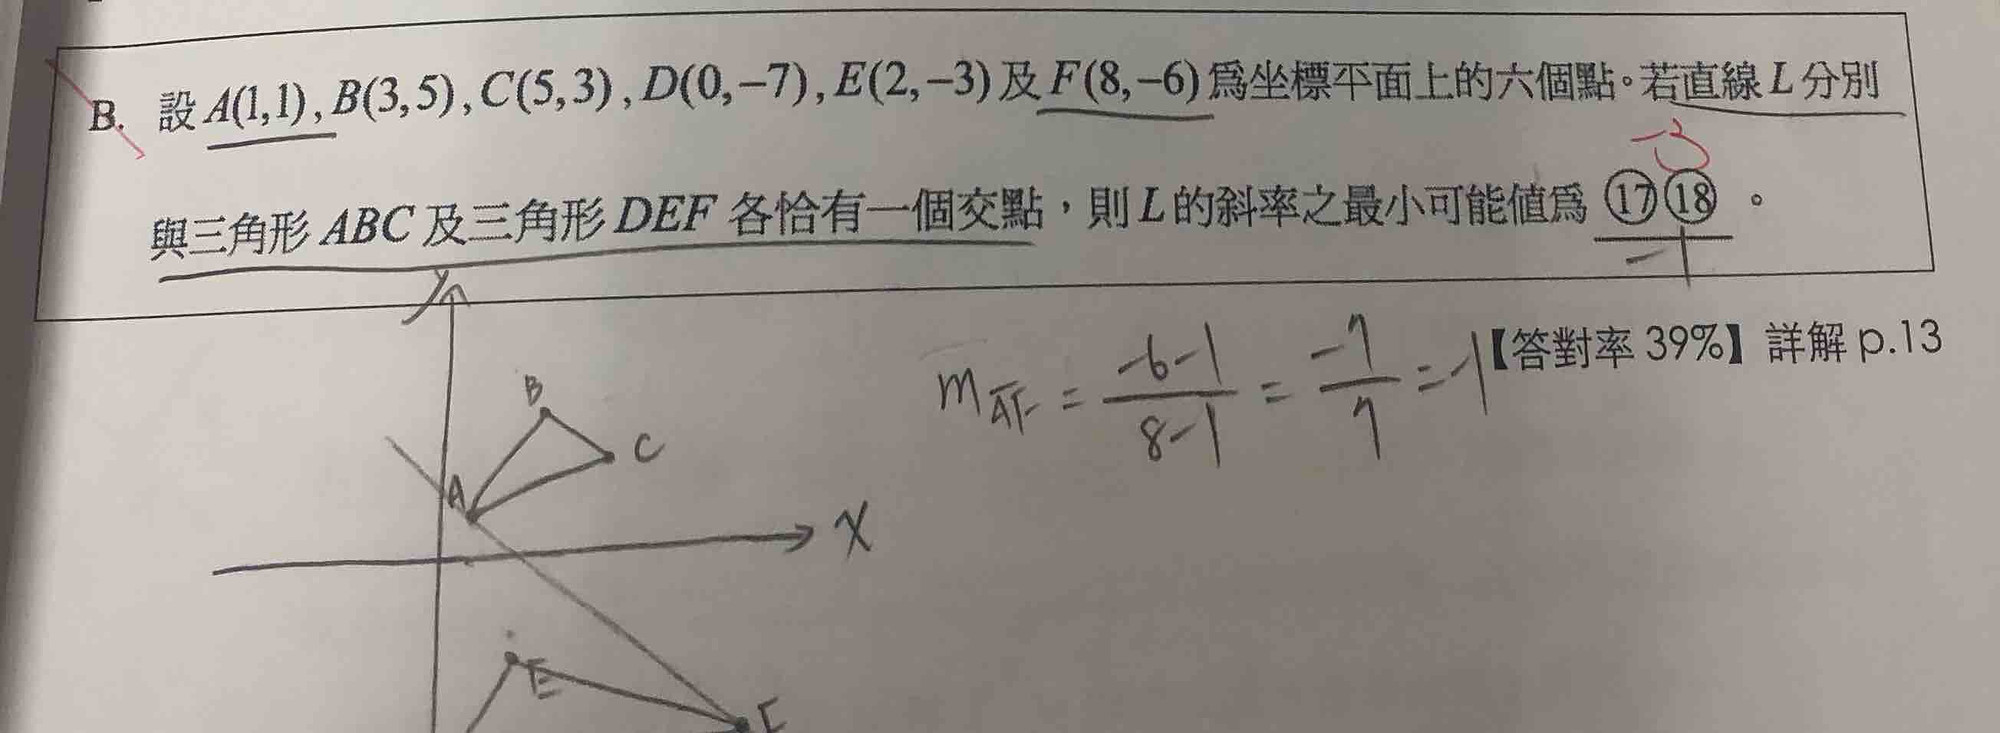 B. 設A(1,1),B(3,5),C(5,3),D(0,−7),E(2,−3)及F(8,−6)爲坐標平面上的六個點。若直線L分別
−3
與三角形ABC及三角形DEF各恰有一個交點，則L的斜率之最小可能値爲⑰⑱。
−1
【答對率39%】詳解p.13
m_AF = (-6-1)/(8-1) = -7/7 = -1
y
B
C
A
x
E
F